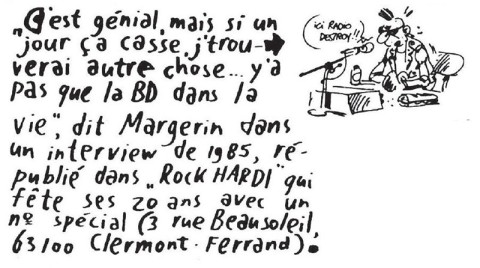 „C'est génial, mais si un
jour ça casse, j'trou-
verai autre chose... y'a
pas que la BD dans la
vie", dit Margerin dans
un interview de 1985, ré-
publié dans „ROCK HARDI" qui
fête ses 20 ans avec un
nº spécial (3 rue Beausoleil,
63100 Clermont-Ferrand).
ici RADIO
DESTROY!!